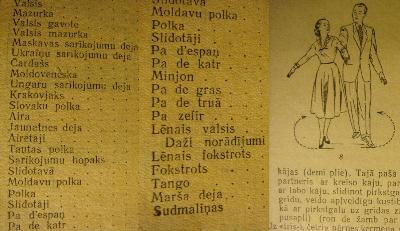 Valsis
Mazurka
Valsis gavote
Valsis mazurka
Maskavas sarikojumu deja
Ukraiņu sarikojumu deja
Čardašs
Moldovenēska
Ungaru sarikojumu deja
Krakovjaks
Slovaku polka
Aira
Jaunetnes deja
Airētāji
Tautas polka
Sarikojumu hopaks
Slidotavā
Moldavu polka
Polka
Slidotāji
Pa d'espaņ
Pa de katr
Slidotavā
Moldavu polka
Polka
Slidotāji
Pa d'espaņ
Pa de katr
Minjon
Pa de gras
Pa de truā
Pa zefir
Lēnais valsis
Daži norādījumi
Lēnais fokstrots
Fokstrots
Tango
Marša deja
Sudmaliņas
8
kājas (demi plié). Tajā pašā
partneris ar kreiso kāju, par
ar labo kāju, slidinot pirkstga
grīdu, veido apļveidīgu kustīb
kā ar pirkstgalu uz grīdas zī
pusapli) (ron de žamb par